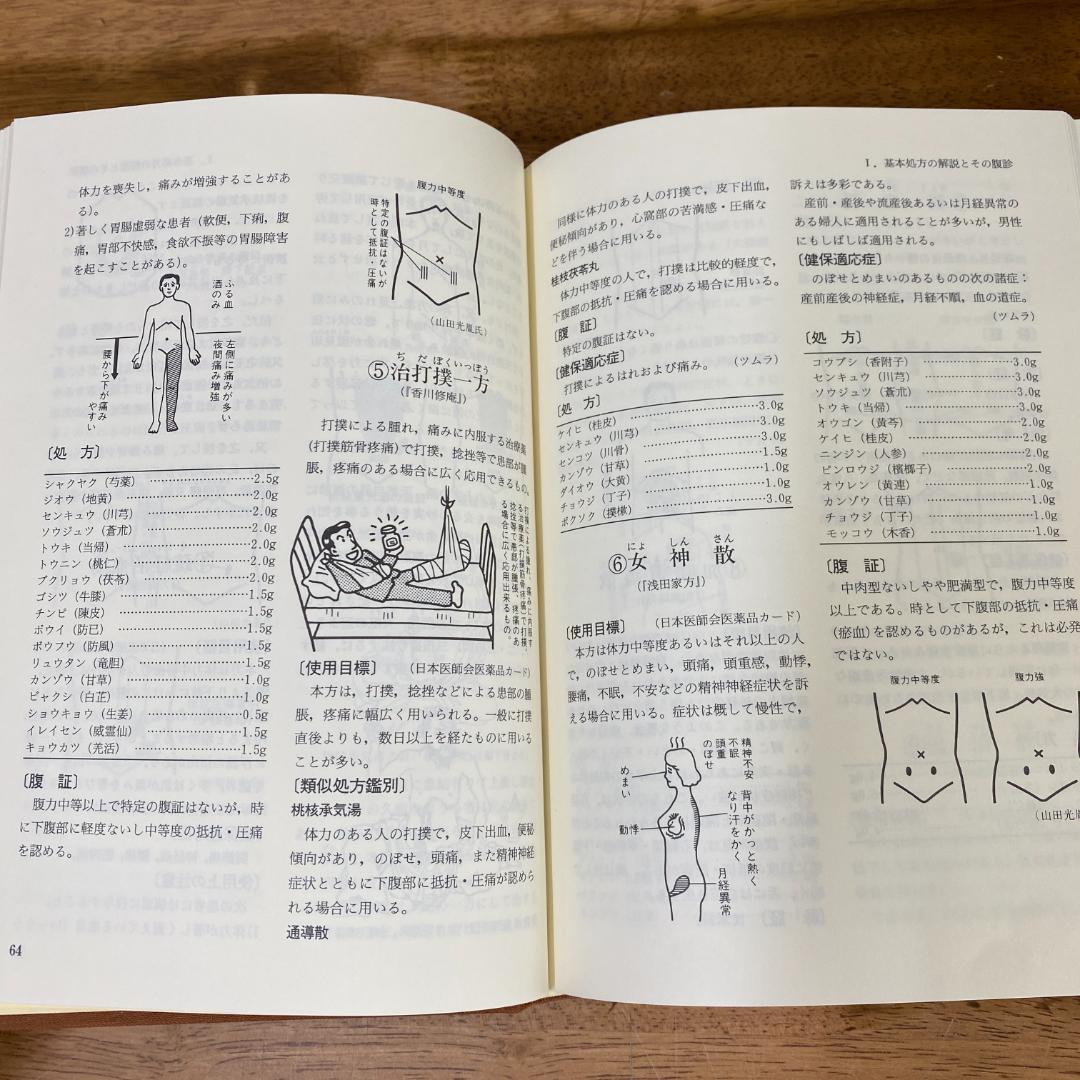 体力を喪失し，痛みが増強することがあ
る）。
2）著しく胃腸虚弱な患者（軟便，下痢，腹
痛，胃部不快感，食欲不振等の胃腸障害
を起こすことがある）。
ふる血
酒のみ
左側に痛みが多い
夜間痛み増強
腰から下が痛み
やすい
〔処　方〕
シャクヤク（芍薬）……2.5g
ジオウ（地黄）……2.0g
センキュウ（川芎）……2.0g
ソウジュツ（蒼朮）……2.0g
トウキ（当帰）……2.0g
トウニン（桃仁）……2.0g
ブクリョウ（茯苓）……2.0g
ゴシツ（牛膝）……1.5g
チンピ（陳皮）……1.5g
ボウイ（防已）……1.5g
ボウフウ（防風）……1.5g
リュウタン（竜胆）……1.5g
カンゾウ（甘草）……1.0g
ビャクシ（白芷）……1.0g
ショウキョウ（生姜）……0.5g
イレイセン（威霊仙）……1.5g
キョウカツ（羌活）……1.5g
〔腹　証〕
腹力中等以上で特定の腹証はないが，時
に下腹部に軽度ないし中等度の抵抗・圧痛
を認める。
64
腹力中等度
特定の腹証はないが
時として抵抗・圧痛
（山田光胤氏）
ぢだぼくいっぽう
⑤治打撲一方
（『香川修庵』）
打撲による腫れ，痛みに内服する治療薬
（打撲筋骨疼痛）で打撲，捻挫等で患部が腫
脹，疼痛のある場合に広く応用できるもの。
打撲による腫れ，痛みに内服す
る治療薬（打撲筋骨疼痛）で打撲
捻挫等で患部が腫脹，疼痛のあ
る場合に広く応用出来るもの。
〔使用目標〕　（日本医師会医薬品カード）
本方は，打撲，捻挫などによる患部の腫
脹，疼痛に幅広く用いられる。一般に打撲
直後よりも，数日以上を経たものに用いる
ことが多い。
〔類似処方鑑別〕
桃核承気湯
体力のある人の打撲で，皮下出血，便秘
傾向があり，のぼせ，頭痛，また精神神経
症状とともに下腹部に抵抗・圧痛が認めら
れる場合に用いる。
通導散
Ⅰ．基本処方の解説とその腹診
同様に体力のある人の打撲で，皮下出血，
便秘傾向があり，心窩部の苦満感・圧痛な
どを伴う場合に用いる。
桂枝茯苓丸
体力中等度の人で，打撲は比較的軽度で，
下腹部の抵抗・圧痛を認める場合に用いる。
〔腹　証〕
特定の腹証はない。
〔健保適応症〕
打撲によるはれおよび痛み。　（ツムラ）
〔処　方〕
ケイヒ（桂皮）……3.0g
センキュウ（川芎）……3.0g
センコツ（川骨）……3.0g
カンゾウ（甘草）……1.5g
ダイオウ（大黄）……1.0g
チョウジ（丁子）……1.0g
ボクソク（撲樕）……3.0g
にょ　しん　さん
⑥女　神　散
（『浅田家方』）
〔使用目標〕　（日本医師会医薬品カード）
本方は体力中等度あるいはそれ以上の人
で，のぼせとめまい，頭痛，頭重感，動悸，
腰痛，不眠，不安などの精神神経症状を訴
える場合に用いる。症状は概して慢性で，
精神不安
不眠
頭重
のぼせ
めまい
動悸
背中がかっと熱く
なり汗をかく
月経異常
訴えは多彩である。
産前・産後や流産後あるいは月経異常の
ある婦人に適用されることが多いが，男性
にもしばしば適用される。
〔健保適応症〕
のぼせとめまいのあるものの次の諸症：
産前産後の神経症，月経不順，血の道症。
（ツムラ）
〔処　方〕
コウブシ（香附子）……3.0g
センキュウ（川芎）……3.0g
ソウジュツ（蒼朮）……3.0g
トウキ（当帰）……3.0g
オウゴン（黄芩）……2.0g
ケイヒ（桂皮）……2.0g
ニンジン（人参）……2.0g
ビンロウジ（檳榔子）……2.0g
オウレン（黄連）……1.0g
カンゾウ（甘草）……1.0g
チョウジ（丁子）……1.0g
モッコウ（木香）……1.0g
〔腹　証〕
中肉型ないしやや肥満型で，腹力中等度
以上である。時として下腹部の抵抗・圧痛
（瘀血）を認めるものがあるが，これは必発
ではない。
腹力中等度
腹力強
（山田光胤